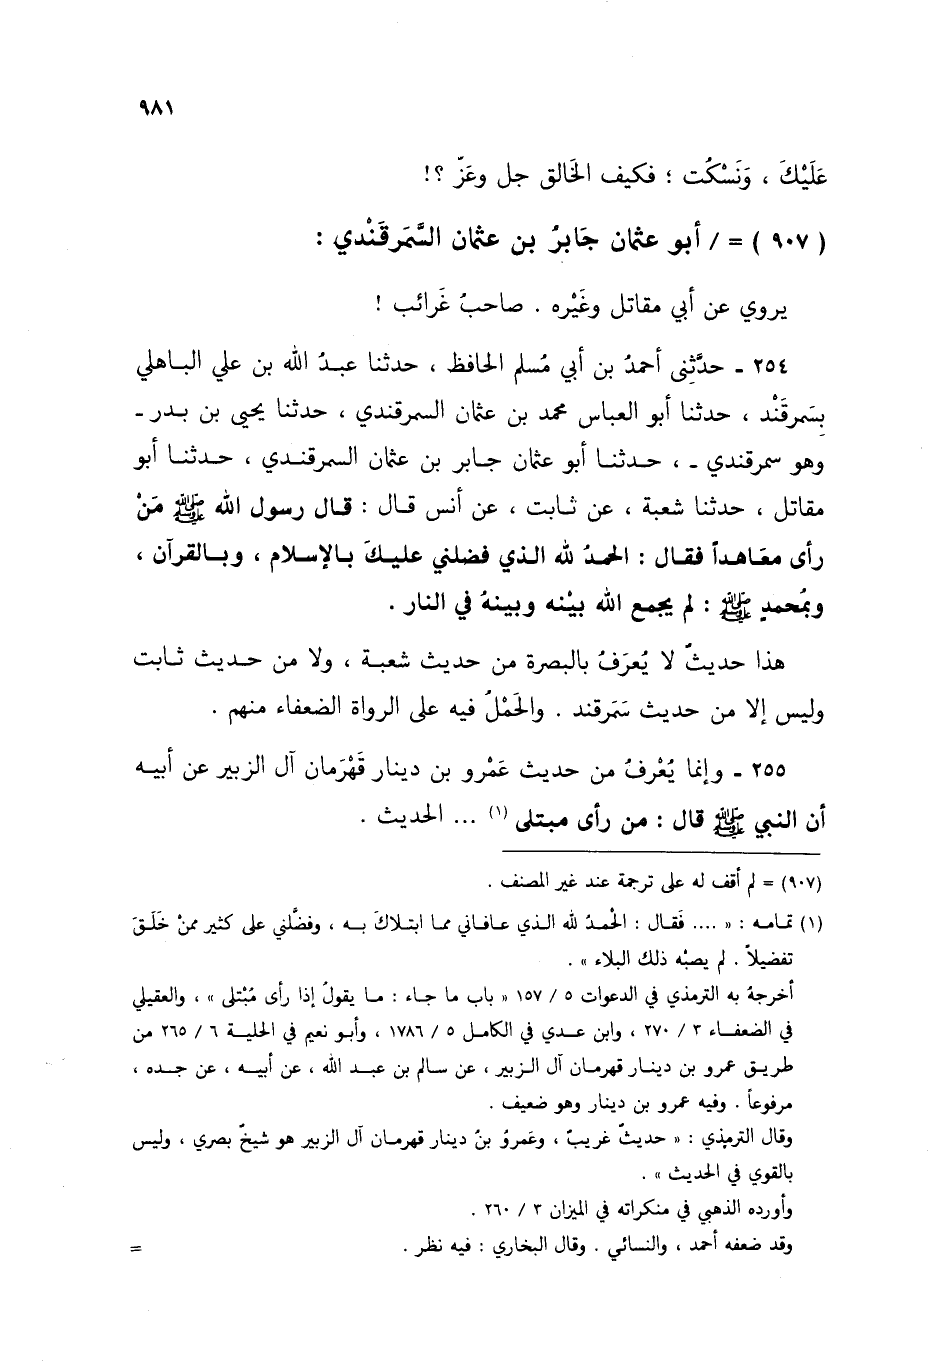 ٩٨١
عَلَيْكَ ، وَنَسْكُت ؛ فكيف الخَالق جل وعَزّ ؟!
( ٩٠٧ ) = / أبو عثمان جَابرُ بن عثمان السَّمَرقَنْدي :
يروي عن أبي مقاتل وغَيْره . صاحبُ غَرائب !
٢٥٤ ـ حدَّثني أحمدُ بن أبي مُسلم الحافظ ، حدثنا عبدُ الله بن علي الباهلي
بسَمرقَنْد ، حدثنا أبو العباس محمد بن عثمان السمرقندي ، حدثنا يحيى بن بدر ـ
وهو سمرقندي ـ ، حدثنا أبو عثمان جابر بن عثمان السمرقندي ، حدثنا أبو
مقاتل ، حدثنا شعبة ، عن ثابت ، عن أنس قال : قال رسول الله ﷺ مَنْ
رأى معَاهداً فقال : الحمدُ لله الذي فضلني عليكَ بالإسلام ، وبالقرآن ،
وبمُحمدٍ ﷺ : لم يجمع الله بيْنه وبينهُ في النار .
هذا حديثٌ لا يُعرَفُ بالبصرة من حديث شعبة ، ولا من حديث ثابت
وليس إلا من حديث سَمَرقند . والحَمْلُ فيه على الرواة الضعفاء منهم .
٢٥٥ ـ وإنما يُعْرفُ من حديث عَمْرو بن دينار قَهْرَمان آل الزبير عن أبيه
أن النبي ﷺ قال : من رأى مبتلى (١) ... الحديث .
(٩٠٧) = لم أقف له على ترجمة عند غير المصنف .
(١) تمامه : « .... فَقال : الحْمدُ لله الذي عافاني مما ابتلاكَ به ، وفضَّلني على كثير ممنْ خَلَقَ
تفضيلاً . لم يصبْه ذلك البلاء » .
أخرجهُ به الترمذي في الدعوات ٥ / ١٥٧ « باب ما جاء : ما يقولُ إذا رأى مُبْتلى » ، والعقيلي
في الضعفاء ٣ / ٢٧٠ ، وابن عدي في الكامل ٥ / ١٧٨٦ ، وأبو نعيم في الحلية ٦ / ٢٦٥ من
طريق عمرو بن دينار قهرمان آل الزبير ، عن سالم بن عبد الله ، عن أبيه ، عن جده ،
مرفوعاً . وفيه عمرو بن دينار وهو ضعيف .
وقال الترمذي : « حديثٌ غريبٌ ، وعَمروُ بنُ دينار قهرمان آل الزبير هو شيخٌ بصري ، وليس
بالقوي في الحديث » .
وأورده الذهبي في منكراته في الميزان ٣ / ٢٦٠ .
وقد ضعفه أحمد ، والنسائي . وقال البخاري : فيه نظر .
=